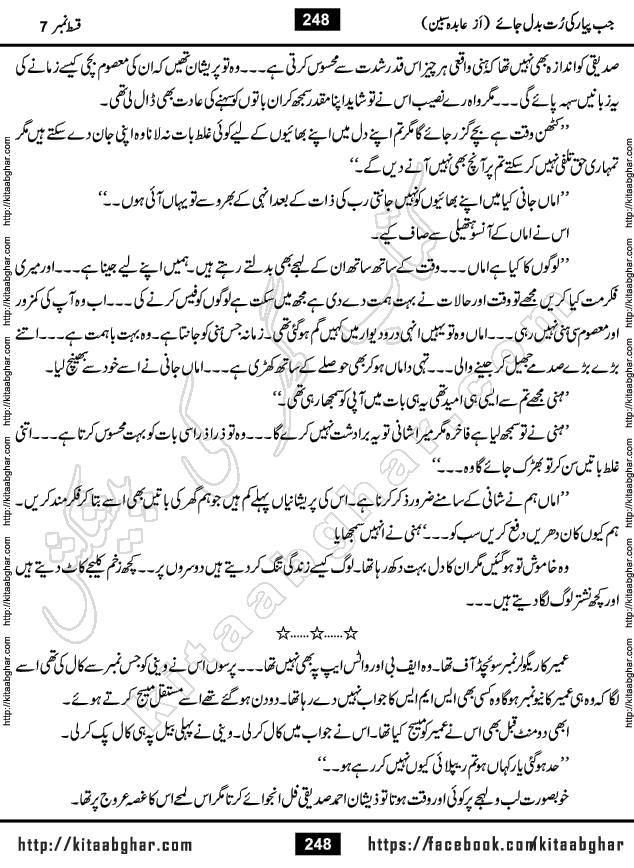 جب پیار کی رُت بدل جائے (اَز عابدہ سبین)
248
قسط نمبر 7
صدیقی کو اندازہ بھی نہیں تھا کہ ہنی واقعی ہر چیز اس قدر شدت سے محسوس کرتی ہے۔۔۔ وہ تو پریشان تھیں کہ ان کی معصوم بچی کیسے زمانے کی
یہ زبانیں سہہ پائے گی۔۔۔ مگر واہ رے نصیب اس نے تو شاید اپنا مقدر سمجھ کر ان باتوں کو سہنے کی عادت بھی ڈال لی تھی۔
’’کٹھن وقت ہے بچے گزر جائے گا مگر تم اپنے دل میں اپنے بھائیوں کے لیے کوئی غلط بات نہ لانا وہ اپنی جان دے سکتے ہیں مگر
تمہاری حق تلفی نہیں کر سکتے تم پر آنچ بھی نہیں آنے دیں گے۔‘‘
’’اماں جانی کیا میں اپنے بھائیوں کو نہیں جانتی رب کی ذات کے بعد انہی کے بھروسے تو یہاں آئی ہوں۔۔‘‘
اس نے اماں کے آنسو ہتھیلی سے صاف کیے۔
’’لوگوں کا کیا ہے اماں۔۔۔ وقت کے ساتھ ساتھ ان کے لہجے بھی بدلتے رہتے ہیں۔ ہمیں اپنے لیے جینا ہے۔۔۔ اور میری
فکر مت کیا کریں مجھے تو وقت اور حالات نے بہت ہمت دے دی ہے مجھ میں سکت ہے لوگوں کو فیس کرنے کی۔۔۔ اب وہ آپ کی کمزور
اور معصوم سی ہنی نہیں رہی۔۔۔ اماں وہ تو یہیں انہی درو دیوار میں کہیں گم ہو گئی تھی۔ زمانہ جس ہنی کو جانتا ہے۔ وہ بہت باہمت ہے۔۔۔ اتنے
بڑے بڑے صدمے جھیل کر جینے والی۔۔۔ تہی داماں ہو کر بھی حوصلے کے ساتھ کھڑی ہے۔۔۔ اماں جانی نے اسے خود سے بھینچ لیا۔
’’ہنی مجھے تم سے ایسی ہی امید تھی یہ ہی بات میں آپی کو سمجھا رہی تھی۔‘‘
’’ہنی نے تو سمجھ لیا ہے فاخرہ مگر میرا شانی تو یہ برداشت نہیں کرے گا۔۔۔ وہ تو ذرا ذرا سی بات کو بہت محسوس کرتا ہے۔۔۔ اتنی
غلط باتیں سن کر تو بھڑک جائے گا وہ۔۔۔‘‘
’’اماں ہم نے شانی کے سامنے ضرور ذکر کرنا ہے۔ اس کی پریشانیاں پہلے کم ہیں جو ہم گھر کی باتیں بھی اسے بتا کر فکر مند کریں۔
ہم کیوں کان دھریں دفع کریں سب کو۔۔۔‘‘ ہنی نے انہیں سمجھایا
وہ خاموش تو ہو گئیں مگر ان کا دل بہت دکھ رہا تھا۔ لوگ کیسے زندگی تنگ کر دیتے ہیں دوسروں پر۔۔ کچھ زخم کلیجے کاٹ دیتے ہیں
اور کچھ نشتر لوگ لگا دیتے ہیں۔۔۔
☆……☆……☆
عمیر کا ریگولر نمبر سوئچڈ آف تھا۔ وہ ایف بی اور واٹس ایپ پہ بھی نہیں تھا۔۔۔ پرسوں اس نے وینی کو جس نمبر سے کال کی تھی اسے
لگا کہ وہ ہی عمیر کا نیو نمبر ہوگا وہ کسی بھی ایس ایم ایس کا جواب نہیں دے رہا تھا۔ دو دن ہو گئے تھے اسے مستقل میسج کرتے ہوئے۔
ابھی دو منٹ قبل بھی اس نے عمیر کو میسج کیا تھا۔ اس نے جواب میں کال کر لی۔ وینی نے پہلی بیل پہ ہی کال پک کر لی۔
’’حد ہو گئی یار کہاں ہو تم ریپلائی کیوں نہیں کر رہے ہو۔۔‘‘
خوبصورت لب و لہجے پر کوئی اور وقت ہوتا تو ذیشان احمد صدیقی فل انجوائے کرتا مگر اس لمحے اس کا غصہ عروج پر تھا۔
http://kitaabghar.com
248
https://facebook.com/kitaabghar
http://kitaabghar.com http://kitaabghar.com http://kitaabghar.com http://kitaabghar.com http://kitaabghar.com http://kitaabghar.com
http://kitaabghar.com http://kitaabghar.com http://kitaabghar.com http://kitaabghar.com http://kitaabghar.com http://kitaabghar.com
کتاب گھر کی پیشکش
kitaabghar.com